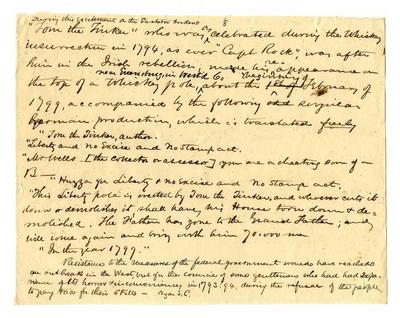 "Tom the Tinker" who was so celebrated during the Whiskey
insurrection in 1794, as ever "Capt Rock" was after
him in the Irish rebellion, made his re-appearance on
near Greensburg, in West'd Co. beginning of
the top of a Whiskey pole, about the February of
1799, accompanied by the following odd
German production, which is translated freely
"Tom the Tinker, author.
"Liberty and no Excise and No Stamp act.
"Mr Wells [the collector & assessor] you are a cheating son of a
B— Huzza for Liberty & no Excise and no Stamp act.
"This Liberty pole is erected by Tom the Tinker, and whoever cuts it
down or demolishes it shall have his House torn down & de-
molished. The Father has gone to the Grand Father, and
will come again and bring with him 70.000 men
"In the year 1799."
Resistance to the measures of the federal government would have reached
an outbreak in the West, but for the council of some gentlemen who had had expe-
rience of the horrors & inconveniency in 1793.94, during the refusal of the people
to pay tax for their Stills —